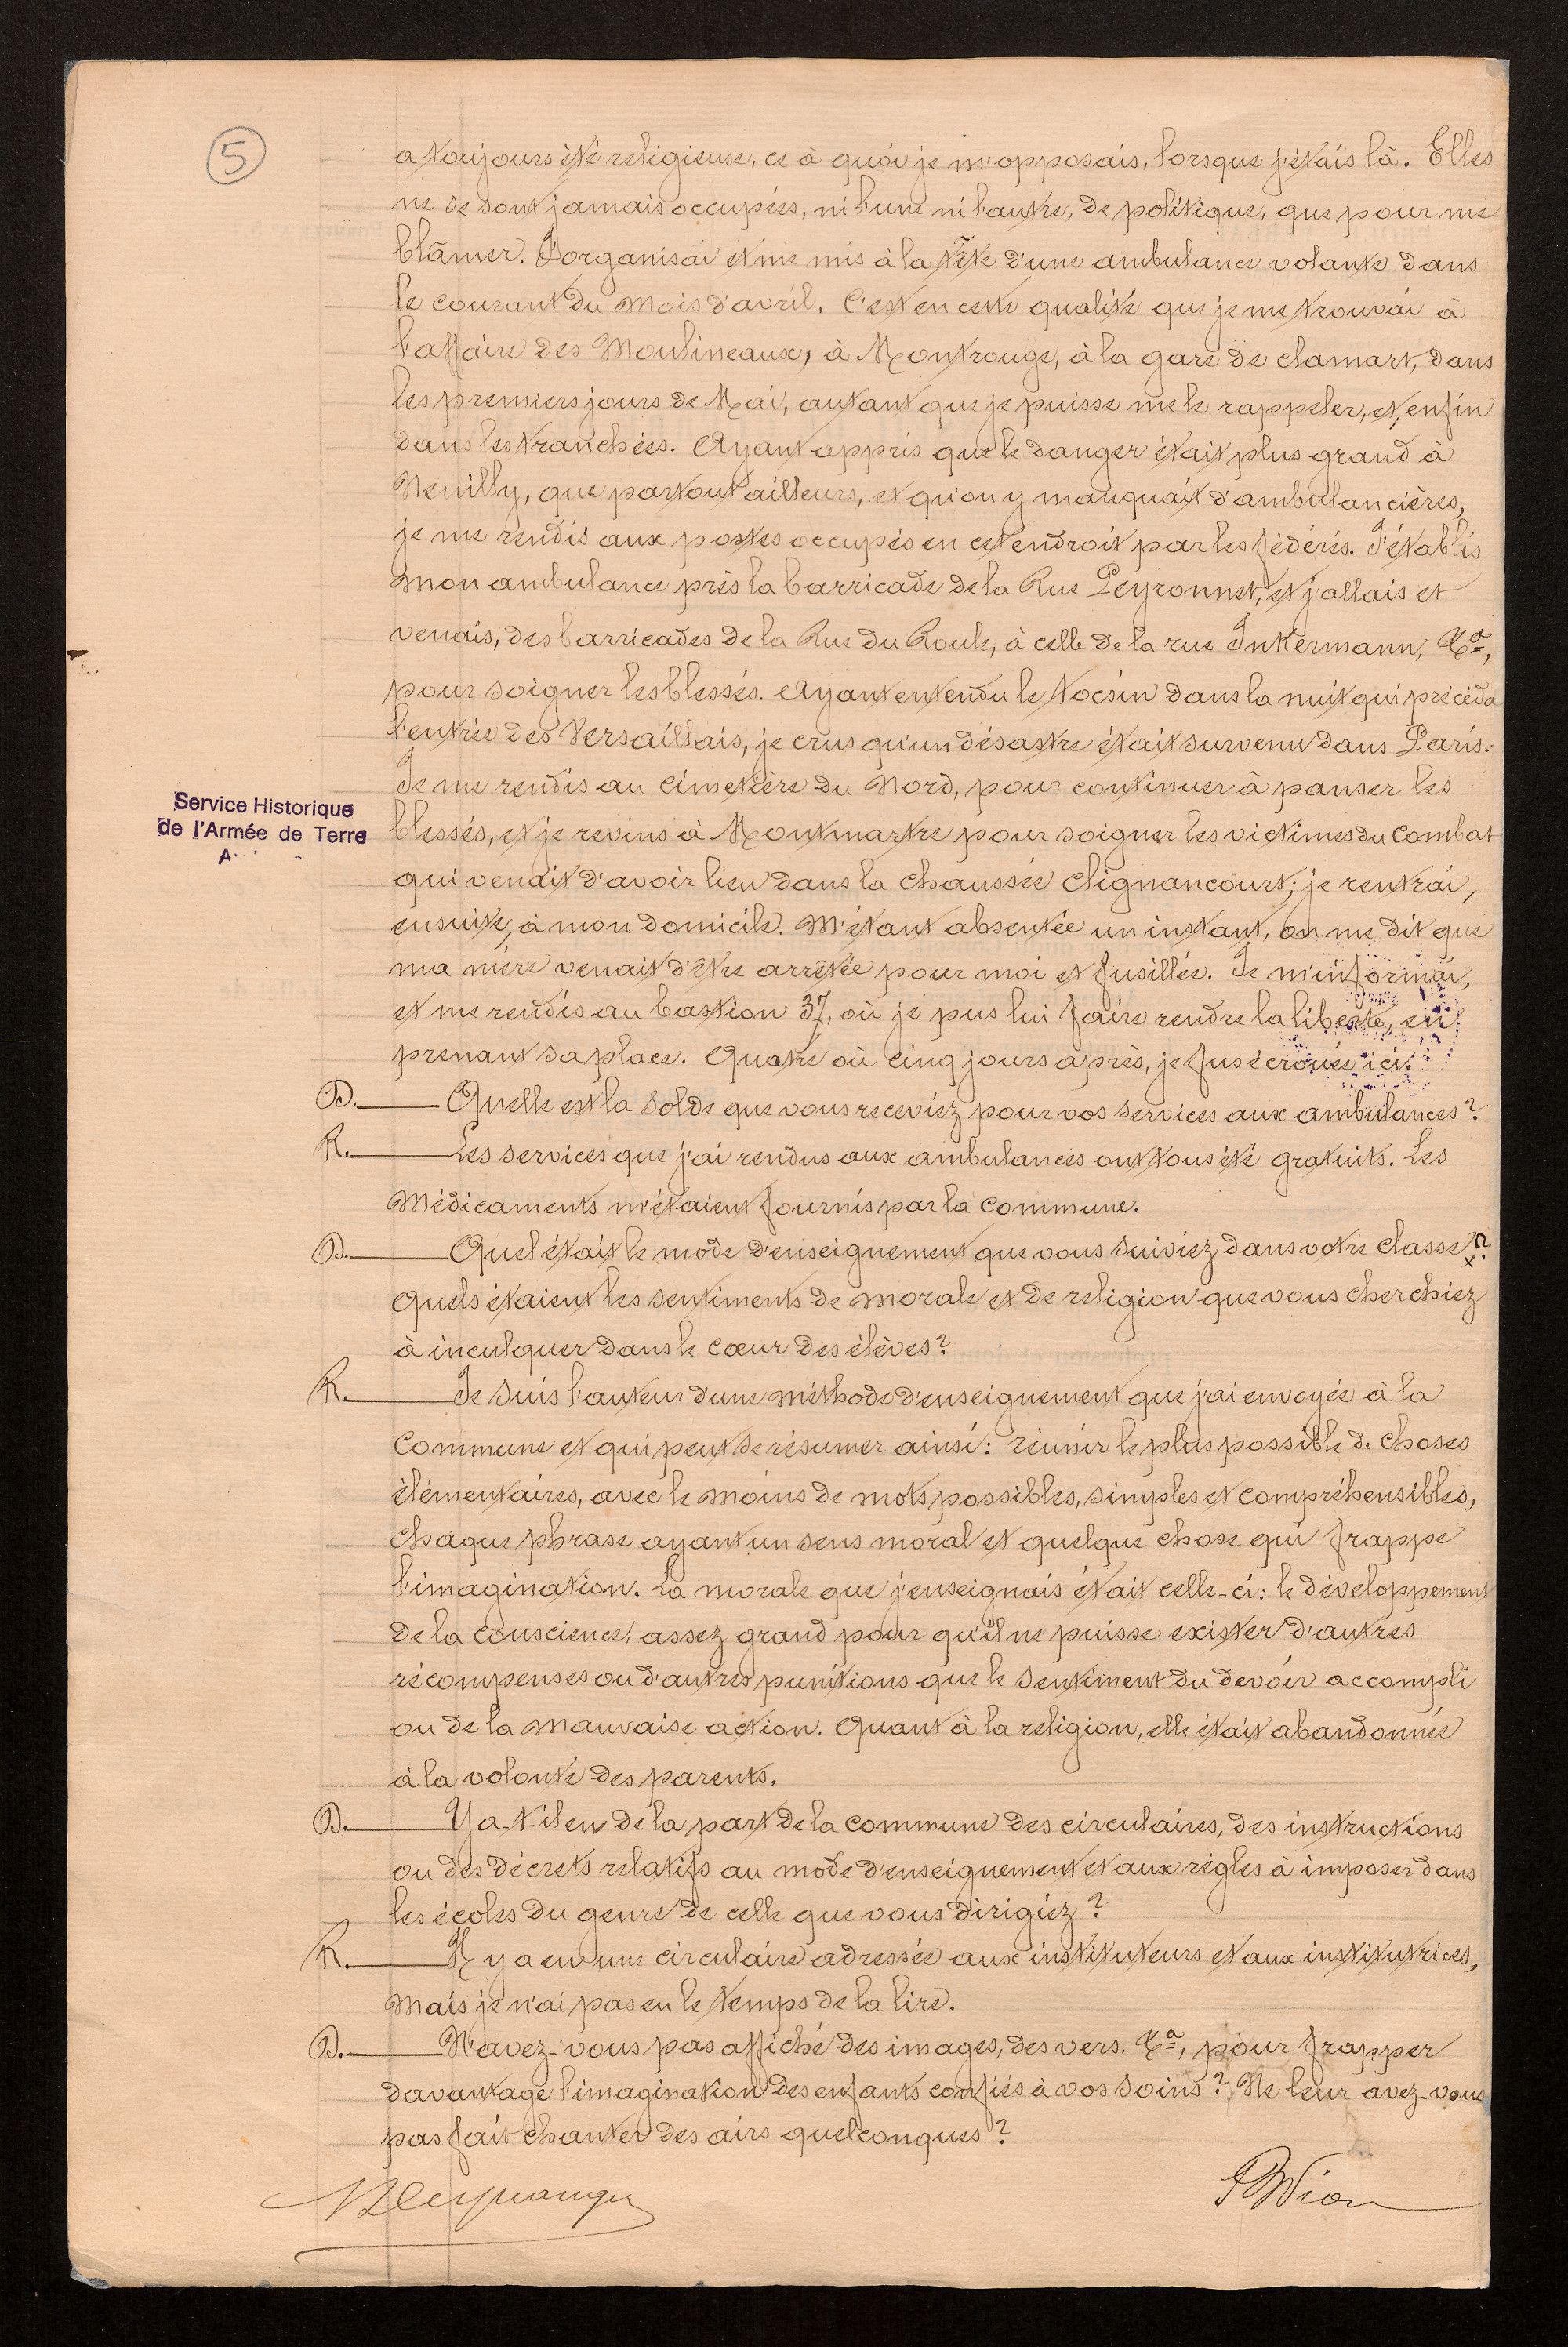 5
a toujours été religieuse, ce à quoi je m'opposais, lorsque j'étais là. Elles
ne se sont jamais occupées, ni l'une ni l'autre, de politique, que pour me
blâmer. J'organisai et me mis à la tête d'une ambulance volante dans
le courant du mois d'avril. C'est en cette qualité que je me trouvai à
l'affaire des Moulineaux, à Montrouge, à la gare de Clamart, dans
les premiers jours de Mai, autant que je puisse me le rappeler, et, enfin
dans les tranchées. Ayant appris que le danger était plus grand à
Neuilly, que partout ailleurs, et qu'on y manquait d'ambulancières,
je me rendis aux postes occupés en cet endroit par les fédérés. J'établis
mon ambulance près la barricade de la Rue Peyronnet, et j'allais et
venais, des barricades de la Rue du Roule, à celle de la rue Inkermann, &a,
pour soigner les blessés. Ayant entendu le tocsin dans la nuit qui précéda
l'entrée des Versaillais, je crus qu'un désastre était survenu dans Paris.
Je me rendis au cimetière du Nord, pour continuer à panser les
Service Historique
de l'Armée de Terre
blessés, et je revins à Montmartre pour soigner les victimes du combat
qui venait d'avoir lieu dans la chaussée Clignancourt; je rentrai,
ensuite, à mon domicile. M'étant absentée un instant, on me dit que
ma mère venait d'être arrêtée pour moi et fusillée. Je m'informai,
et me rendis au bastion 37, où je pus lui faire rendre la liberté, en
prenant sa place. Quatre où cinq jours après, je fus écrouée ici.
D.— Quelle est la solde que vous receviez pour vos services aux ambulances?
R.— Les services que j'ai rendus aux ambulances ont tous été gratuits. Les
Médicaments m'étaient fournis par la commune.
D.— Quel était le mode d'enseignement que vous suiviez dans votre classe?
Quels étaient les sentiments de morale et de religion que vous cherchiez
à inculquer dans le cœur des élèves?
R.— Je suis l'auteur d'une méthode d'enseignement que j'ai envoyée à la
Commune et qui peut se résumer ainsi: réunir le plus possible de choses
élémentaires, avec le moins de mots possibles, simples et compréhensibles,
chaque phrase ayant un sens moral et quelque chose qui frappe
l'imagination. La morale que j'enseignais était celle-ci: le développement
de la conscience, assez grand pour qu'il ne puisse exister d'autres
récompenses ou d'autres punitions que le sentiment du devoir accompli
ou de la mauvaise action. Quant à la religion, elle était abandonnée
à la volonté des parents.
D.— Y a-t-il eu de la part de la commune des circulaires, des instructions
ou des décrets relatifs au mode d'enseignement et aux règles à imposer dans
les écoles du genre de celle que vous dirigiez?
R.— Il y a eu une circulaire adressée aux instituteurs et aux institutrices,
mais je n'ai pas eu le temps de la lire.
D.— N'avez-vous pas affiché des images, des vers. &a, pour frapper
davantage l'imagination des enfants confiés à vos soins? Ne leur avez-vous
pas fait chanter des airs quelconques?